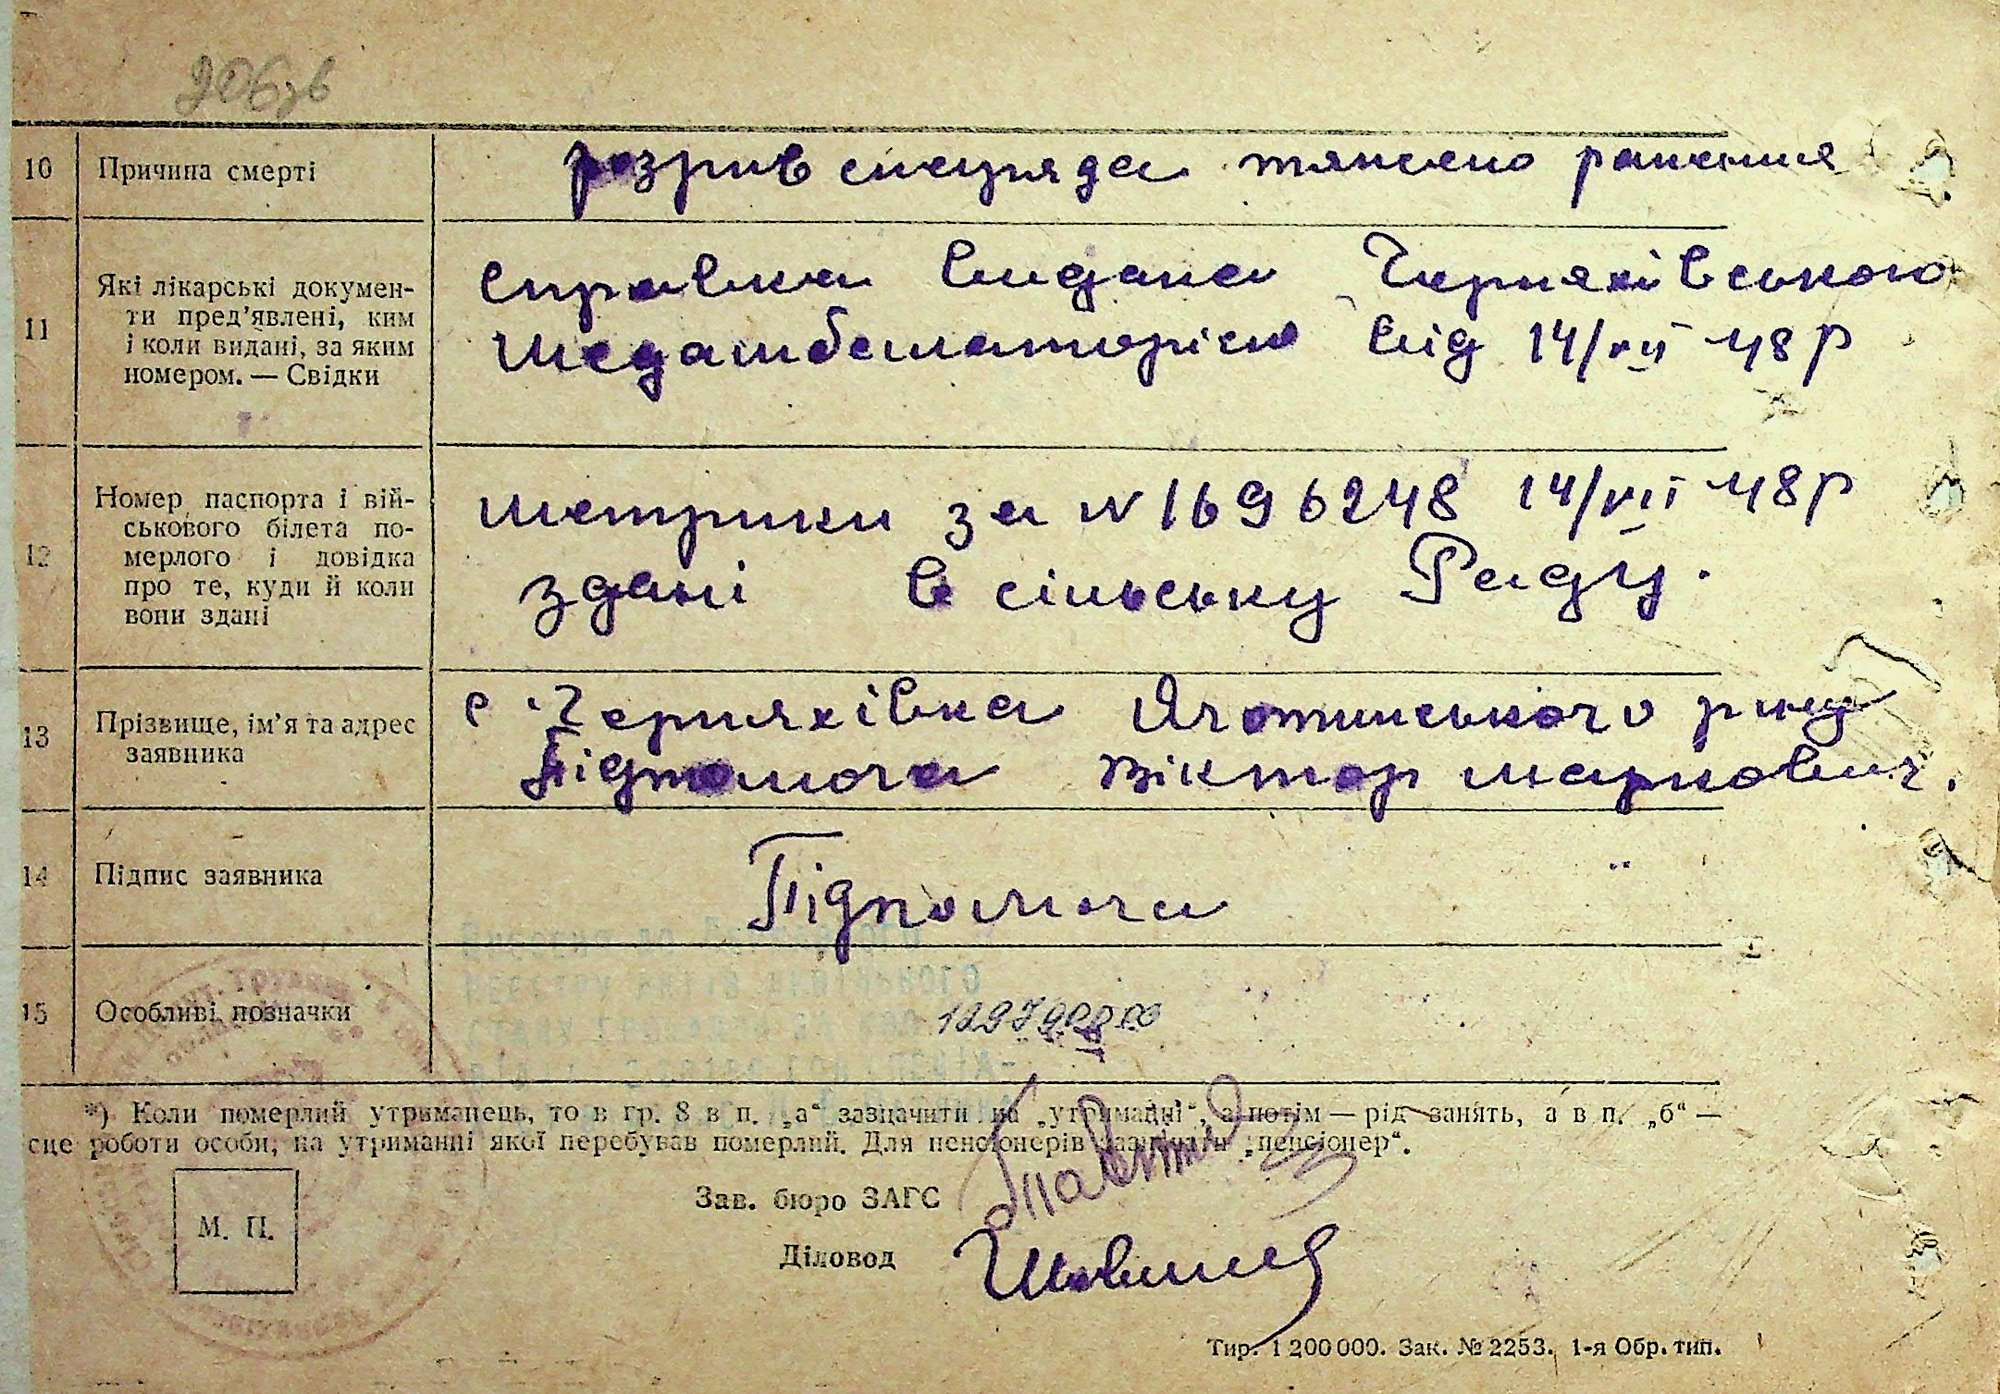 10 Причина смерті розрив снаряда тяжело ранения
11 Які лікарські докумен-
ти пред’явлені, ким
і коли видані, за яким
номером. — Свідки
справка видана Черняхівською
медамбелаторією від 14/VII 48 р
12 Номер паспорта і вій-
ськового білета по-
мерлого і довідка
про те, куди й коли
вони здані
метрики за N 1696248 14/VII 48 р
здані в сільську Раду.
13 Прізвище, ім’я та адрес
заявника
с. Черняхівка Яготинського р-ну
Підпомога Віктор Маркович.
14 Підпис заявника Підпомога
15 Особливі позначки
*) Коли померлий утриманець, то в гр. 8 в п. „а“ зазначити на „утриманні“, а потім — рід занять, а в п. „б“ —
сце роботи особи, на утриманні якої перебував померлий. Для пенсіонерів зазначати „пенсіонер“.
М. П.
Зав. бюро ЗАГС
Діловод
Тир. 1 200 000. Зак. № 2253. 1-я Обр. тип.